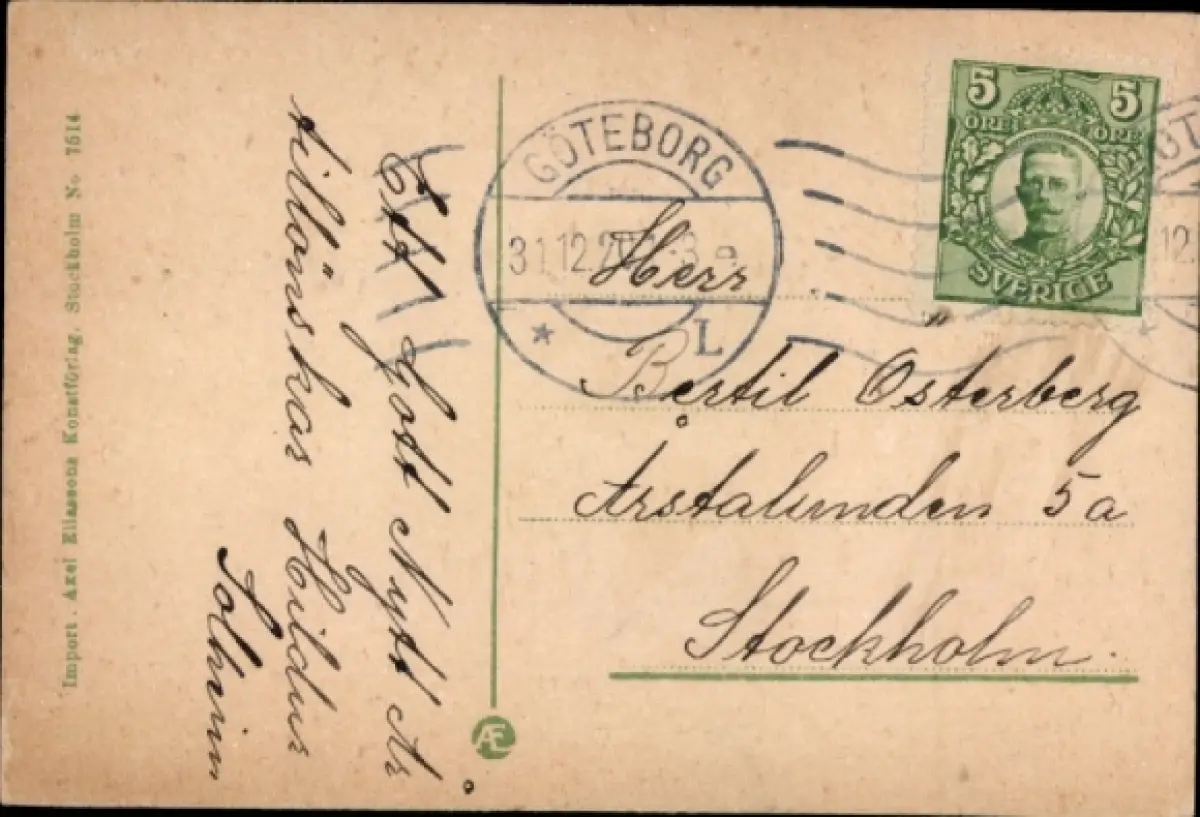 Import. Axel Eliassons Konstförlag. Stockholm No 7514
Ett Gott Nytt År
tillönskas Hildur
GÖTEBORG
31.12.20
L
5 5
ÖRE ÖRE
SVERIGE
Herr
Bertil Osterberg
Årstalunden 5a
Stockholm.
AE
12.